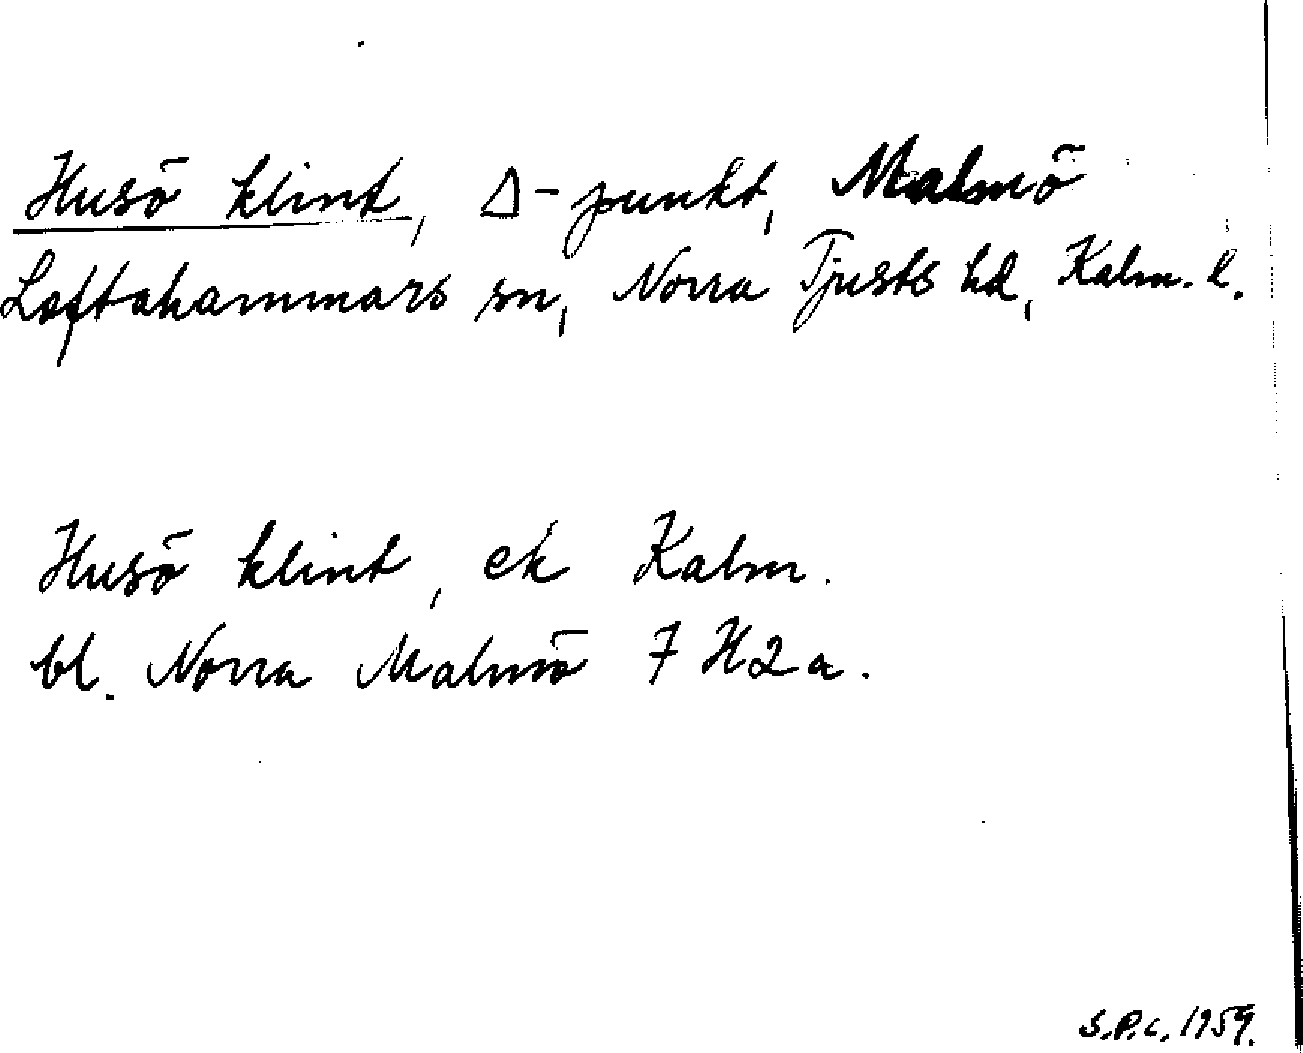 Husö klint, Δ-punkt, Malmö
Loftahammars sn, Norra Tjusts hd, Kalm. l.
Husö klint, ek Kalm.
bl. Norra Malmö 7 H2a.
S.P.C. 1959.